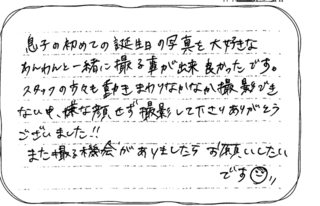 息子の初めての誕生日の写真を大好きな
わんわんと一緒に撮る事が出来良かったです。
スタッフの方々も動きまわりなかなか撮影でき
ない中、嫌な顔せず撮影して下さりありがとう
ございました!!
また撮る機会がありましたらお願いしたい
です☺!!